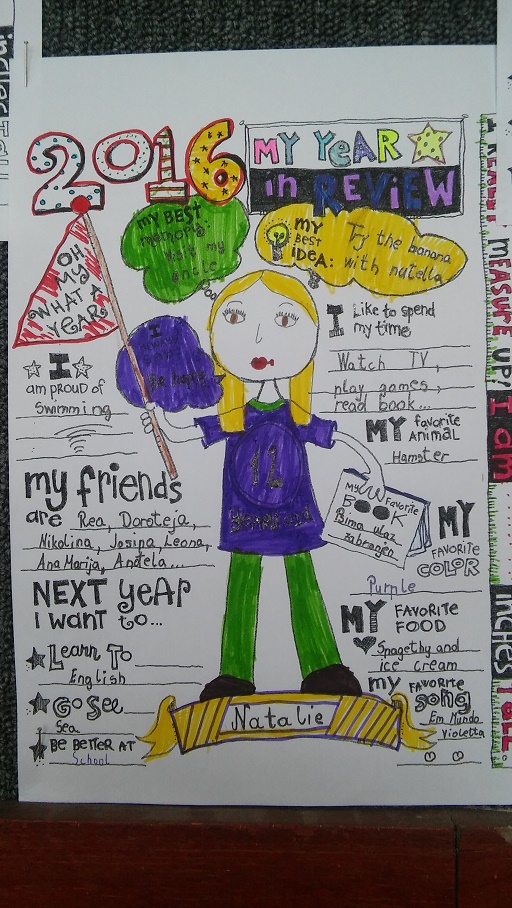 2016
MY YEAR
in REVIEW
MY BEST
memory:
Visit my
uncle
MY
BEST
IDEA:
Try the banana
with nutella
OH
MY
WHAT A
YEAR
I
I
am PROUD OF
Swimming
I Like to spend
my time
Watch TV,
play games,
read book...
MY favorite
Animal
Hamster
11
years old
my friends
are Rea, Doroteja,
Nikolina, Josipa, Leona,
Ana Marija, Anđela...
My favorite
BOOK
Psima ulaz
zabranjen
MY
FAVORITE
COLOR
Purple
NEXT YEAR
I want to...
Learn To
English
Go See
Sea
BE BETTER AT
School
MY FAVORITE
FOOD
Spagethy and
ice cream
my FAVORITE
Song
En Mundo
Violetta
Natalie
MEASURE UP!
I am
INCHES Tall